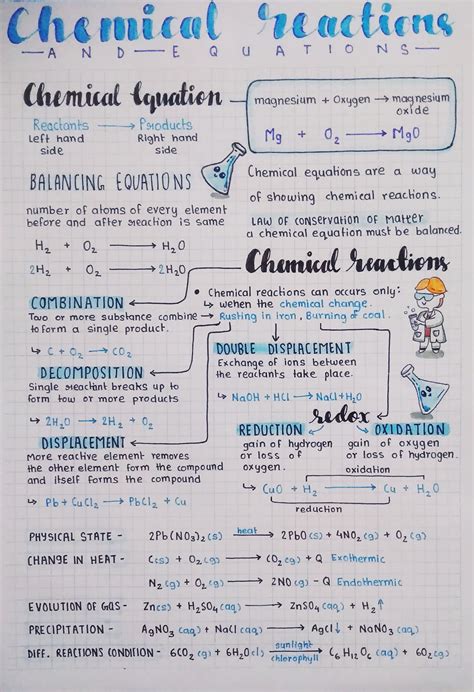 Chemical reactions
AND EQUATIONS
Chemical Equation
magnesium + Oxygen → magnesium oxide
Mg + O₂ → MgO
Reactants → Products
Left hand side
Right hand side
BALANCING EQUATIONS
number of atoms of every element
before and after reaction is same
H₂ + O₂ → H₂O
2H₂ + O₂ → 2H₂O
Chemical equations are a way
of showing chemical reactions.
LAW OF CONSERVATION OF MATTER
a chemical equation must be balanced.
Chemical reactions
• Chemical reactions can occurs only:
↳ wehen the chemical change.
Rusting in iron, Burning of coal.
COMBINATION
Two or more substance combine
to form a single product.
↳ C + O₂ → CO₂
DECOMPOSITION
Single reactant breaks up to
form tow or more products
↳ 2H₂O → 2H₂ + O₂
DISPLACEMENT
More reactive element removes
the other element form the compound
and itself forms the compound
↳ Pb + CuCl₂ → PbCl₂ + Cu
DOUBLE DISPLACEMENT
Exchange of ions between
the reactants take place.
↳ NaOH + HCl → NaCl + H₂O
redox
REDUCTION
gain of hydrogen
or loss of
oxygen.
OXIDATION
gain of oxygen
or loss of hydrogen.
oxidation
↳ CuO + H₂ → Cu + H₂O
reduction
PHYSICAL STATE - 2Pb(NO₃)₂(s) heat → 2PbO(s) + 4NO₂(g) + O₂(g)
CHANGE IN HEAT - C(s) + O₂(g) → CO₂(g) + Q Exothermic
N₂(g) + O₂(g) → 2NO(g) - Q Endothermic
EVOLUTION OF GAS - Zn(s) + H₂SO₄(aq) → ZnSO₄(aq) + H₂↑
PRECIPITATION - AgNO₃(aq) + NaCl(aq) → AgCl↓ + NaNO₃(aq)
DIFF. REACTIONS CONDITION - 6CO₂(g) + 6H₂O(l) sunlight → chlorophyll C₆H₁₂O₆(aq) + 6O₂(g)